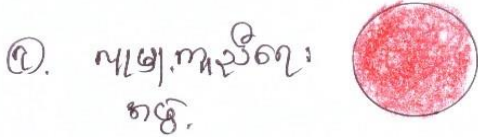 လူမှု့ကူညီရေး
အဖွဲ့